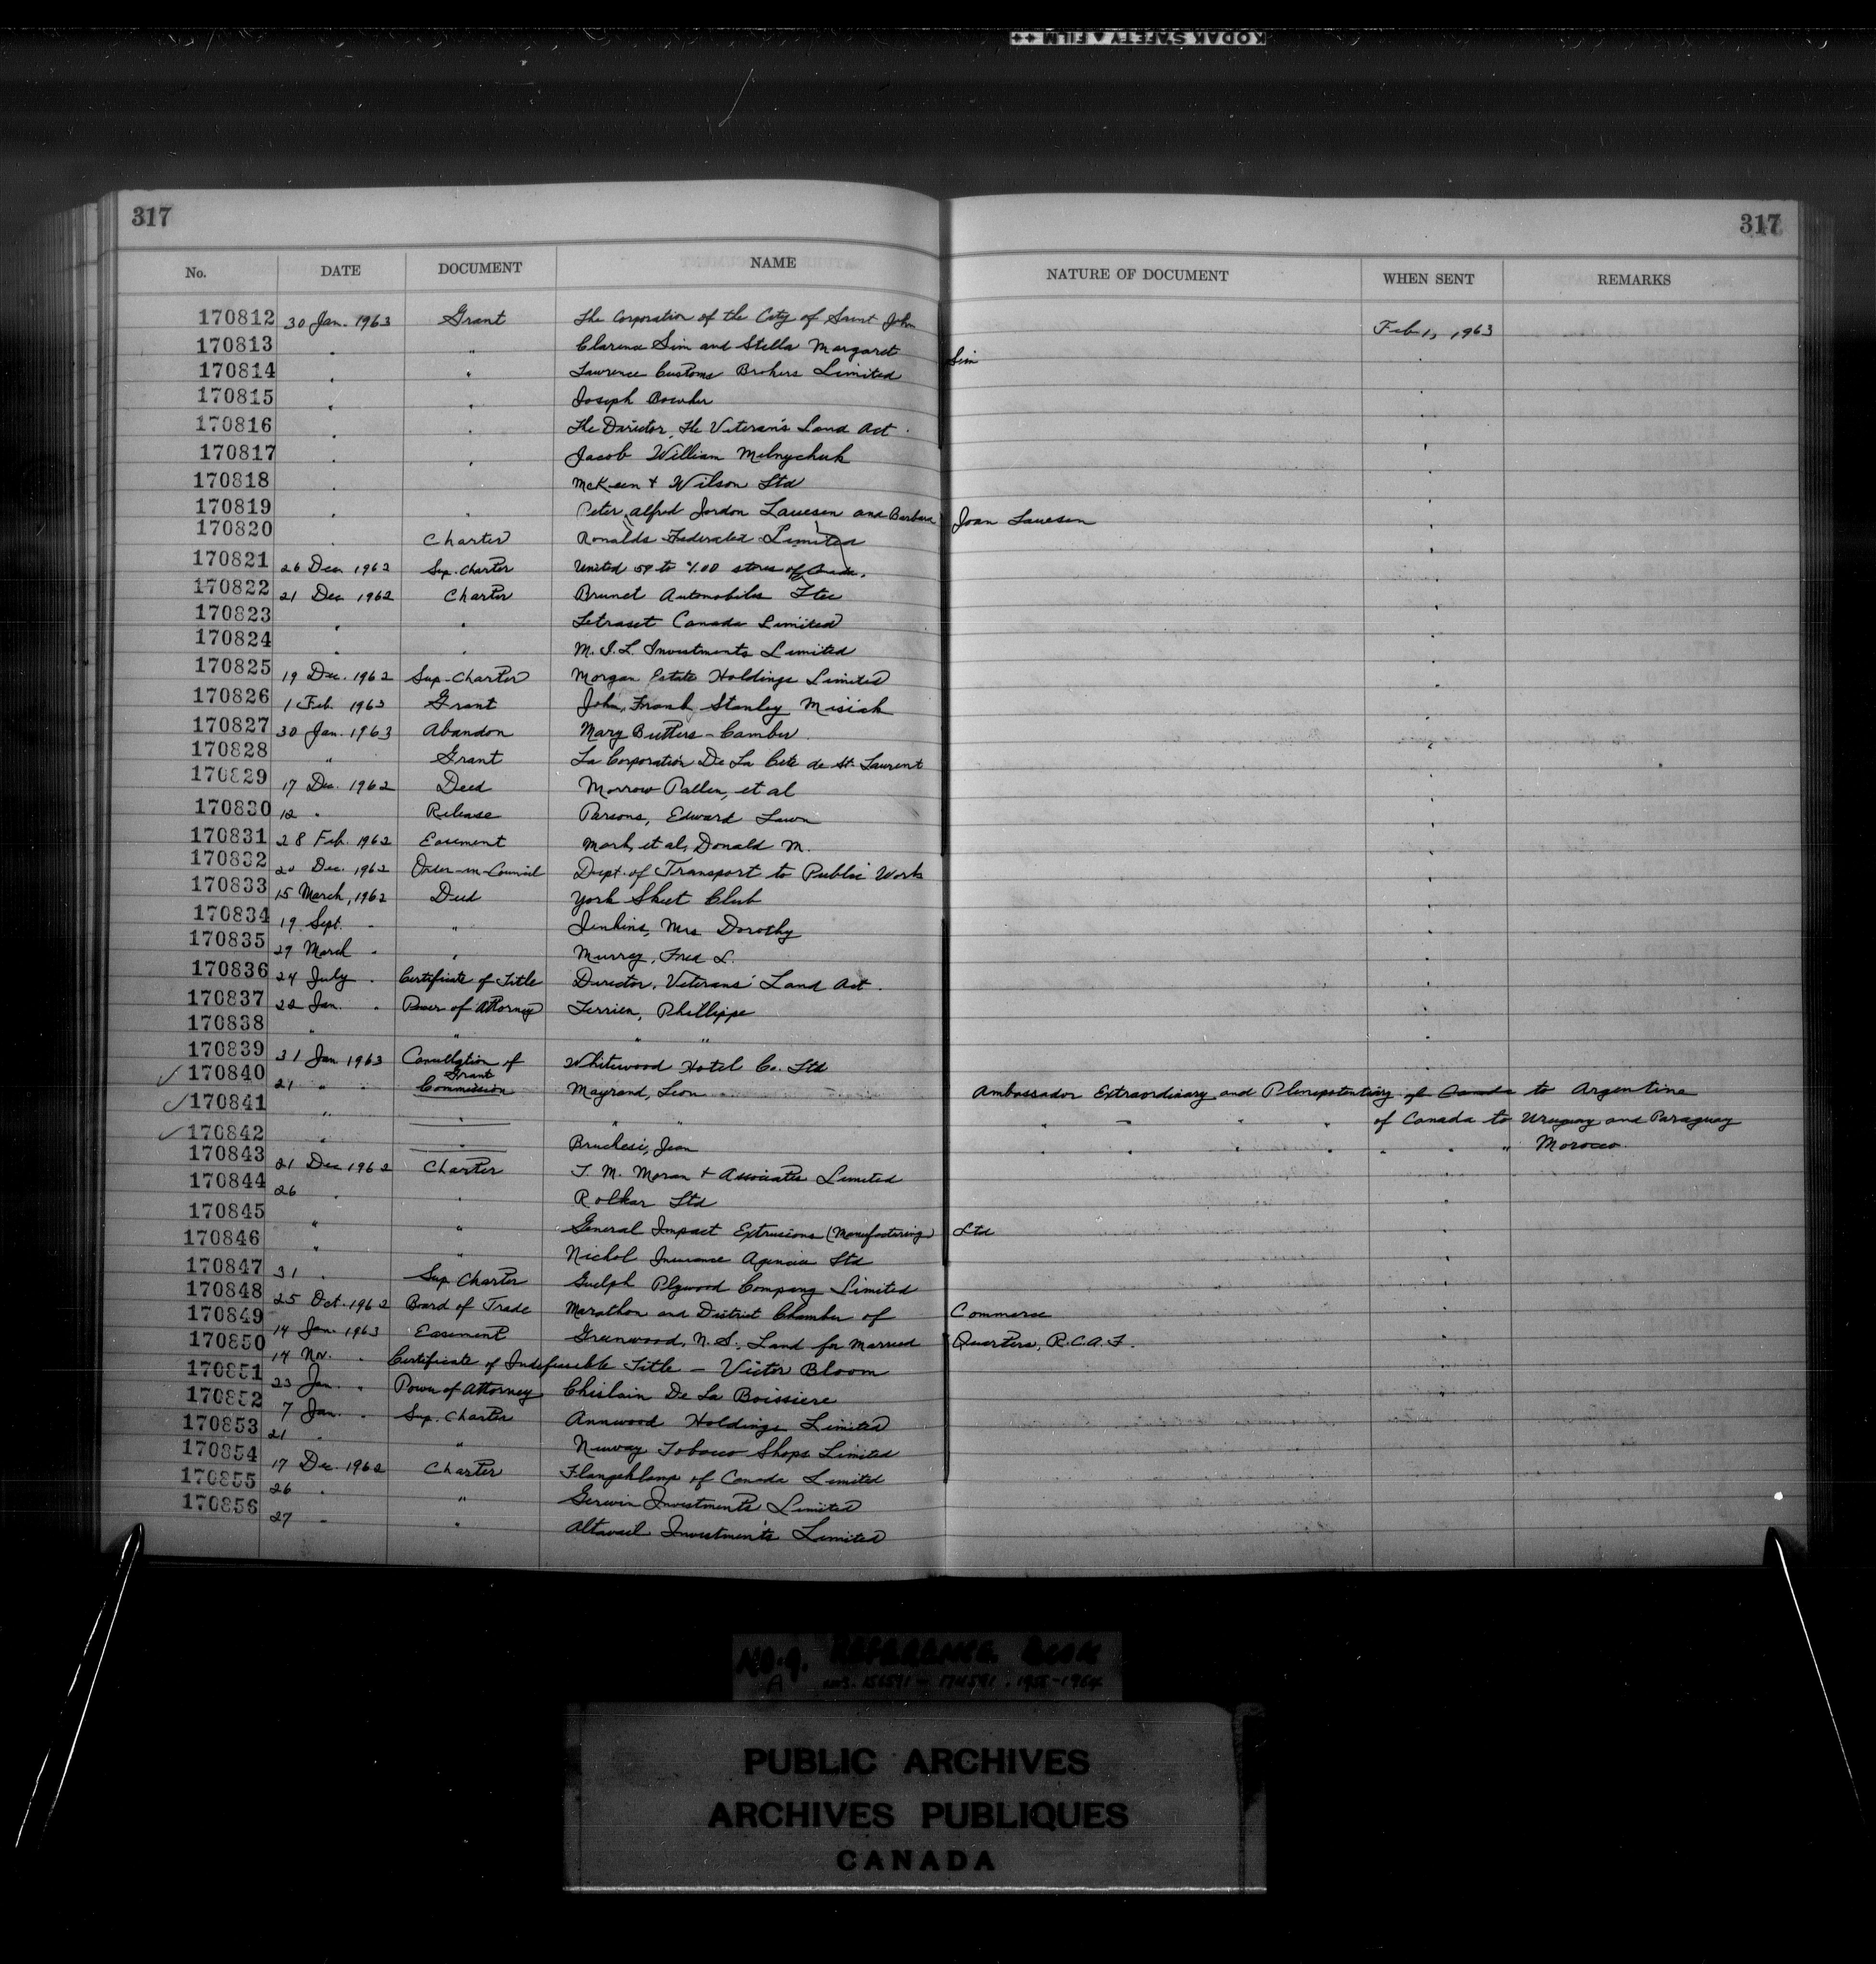 KODAK SAFETY FILM ++
317 317
No. DATE DOCUMENT NAME NATURE OF DOCUMENT WHEN SENT REMARKS
170812 30 Jan. 1963 Grant The Corporation of the City of Saint John Feb 1, 1963
170813 " " Clarence Sim and Stella Margaret Sim "
170814 " " Lawrence Customs Brokers Limited
170815 " " Joseph "
170816 " " The Director, The Veteran's Land Act. "
170817 " " Jacob William Melnychuk "
170818 " McKeen + Wilson Ltd "
170819 " " Peter Alfred Jordon Lauesen and Barbara Joan Lauesen "
170820 " Charter Ronalds-Federated Limited "
170821 26 Dec. 1962 Sup. Charter United 5¢ to 1.00 stores of Canada. "
170822 21 Dec 1962 Charter Brunet Automobiles Ltee "
170823 " " Letraset Canada Limited "
170824 " " M.I.L. Investments Limited "
170825 19 Dec. 1962 Sup-Charter Morgan Estate Holdings Limited "
170826 1 Feb. 1963 Grant John, Frank, Stanley Misiak "
170827 30 Jan. 1963 Abandon Mary Butters-Camber "
170828 " Grant La Corporation De La Cite de St. Laurent "
170829 17 Dec. 1962 Deed Morrow Pallen, et al "
170830 12 " Release Parsons, Edward "
170831 28 Feb. 1962 Easement Mark, et al, Donald M. "
170832 20 Dec. 1962 Order-in-Council Dept. of Transport to Public Work "
170833 15 March, 1962 Deed York Skeet Club "
170834 19 Sept. " " Jenkins, Mrs Dorothy "
170835 29 March " " Murray, Fred L. "
170836 24 July " Certificate of Title Director, Veterans' Land Act. "
170837 22 Jan. " Power of Attorney Terrien, Phillippe "
170838 " " " " "
170839 31 Jan 1963 Cancellation of Grant Whitewood Hotel Co. Ltd
✓ 170840 21 " " Commission Mayrand, Leon Ambassador Extraordinary and Plenipotentiary of Canada to Argentina
✓ 170841 " " " " " " " " of Canada to Uruguay and Paraguay
✓ 170842 " " Bruchesi, Jean " " " " " " Morocco
170843 21 Dec 1962 Charter T. M. Moran + Associates Limited "
170844 26 " " Rolkar Ltd "
170845 " " General Impact Extrusions (Manufacturing) Ltd "
170846 " " Nichol Insurance Agencies Ltd "
170847 31 " Sup Charter Guelph Plywood Company Limited "
170848 25 Oct. 1962 Board of Trade Marathon and District Chamber of Commerce "
170849 14 Jan. 1963 Easement Greenwood, N.S., Land for Married Quarters, R.C.A.F. "
170850 14 Nov. " Certificate of Indefeasible Title - Victor Bloom "
170851 23 Jan. " Power of Attorney Ghislain De La Boissiere "
170852 7 Jan. " Sup. Charter Annwood Holdings Limited "
170853 21 " " Neway Tobacco Shops Limited
170854 17 Dec. 1962 Charter Flangeklamp of Canada Limited
170855 26 " " Gerwin Investments Limited
170856 27 " " Investments Limited
NO. 9. REFERENCE BOOK
A 1955-1964
PUBLIC ARCHIVES
ARCHIVES PUBLIQUES
CANADA